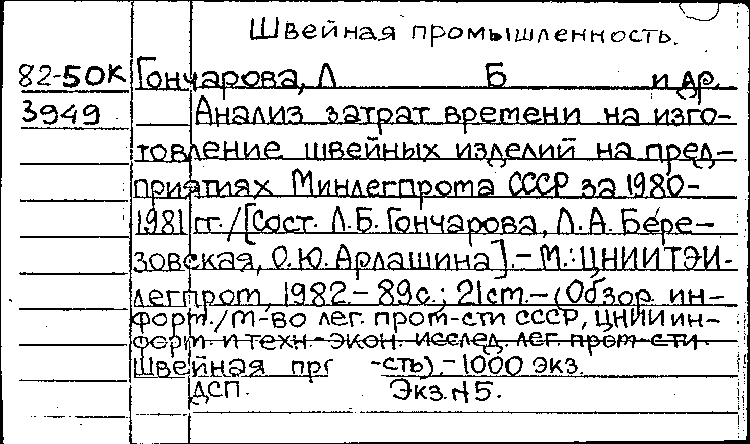 Швейная промышленность.
82-50К Гончарова, Л Б и др.
3949 Анализ затрат времени на изго-
товление швейных изделий на пред-
приятиях Минлегпрома СССР за 1980-
1981 гг./[Сост. Л.Б. Гончарова, Л.А. Бере-
зовская, О.Ю. Арлашина].- М.: ЦНИИТЭИ-
легпром, 1982 - 89с.; 21см. - (Обзор. ин-
форм./М-во лег. пром-сти СССР, ЦНИИ ин-
форм. и техн.-экон. исслед. лег. пром-сти.
Швейная -сть). - 1000 экз.
ДСП. Экз. N5.